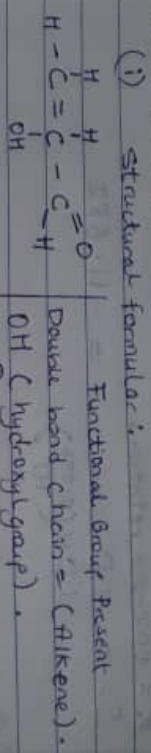 (i) Structural formular:
= Functional Group Present
H H
H - C = C - C = O
OH - H
Double bond chain = (Alkene).
OH (hydroxyl group).